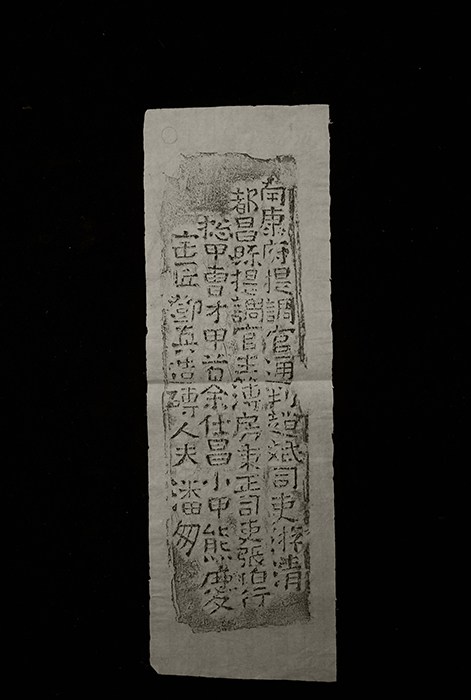 南康府提調官通判趙斌司吏游清
都昌縣提調官主簿房秉正司吏張伯行
捴甲曹才甲首余仕昌小甲熊慶受
窑匠鄧真造磚人夫潘